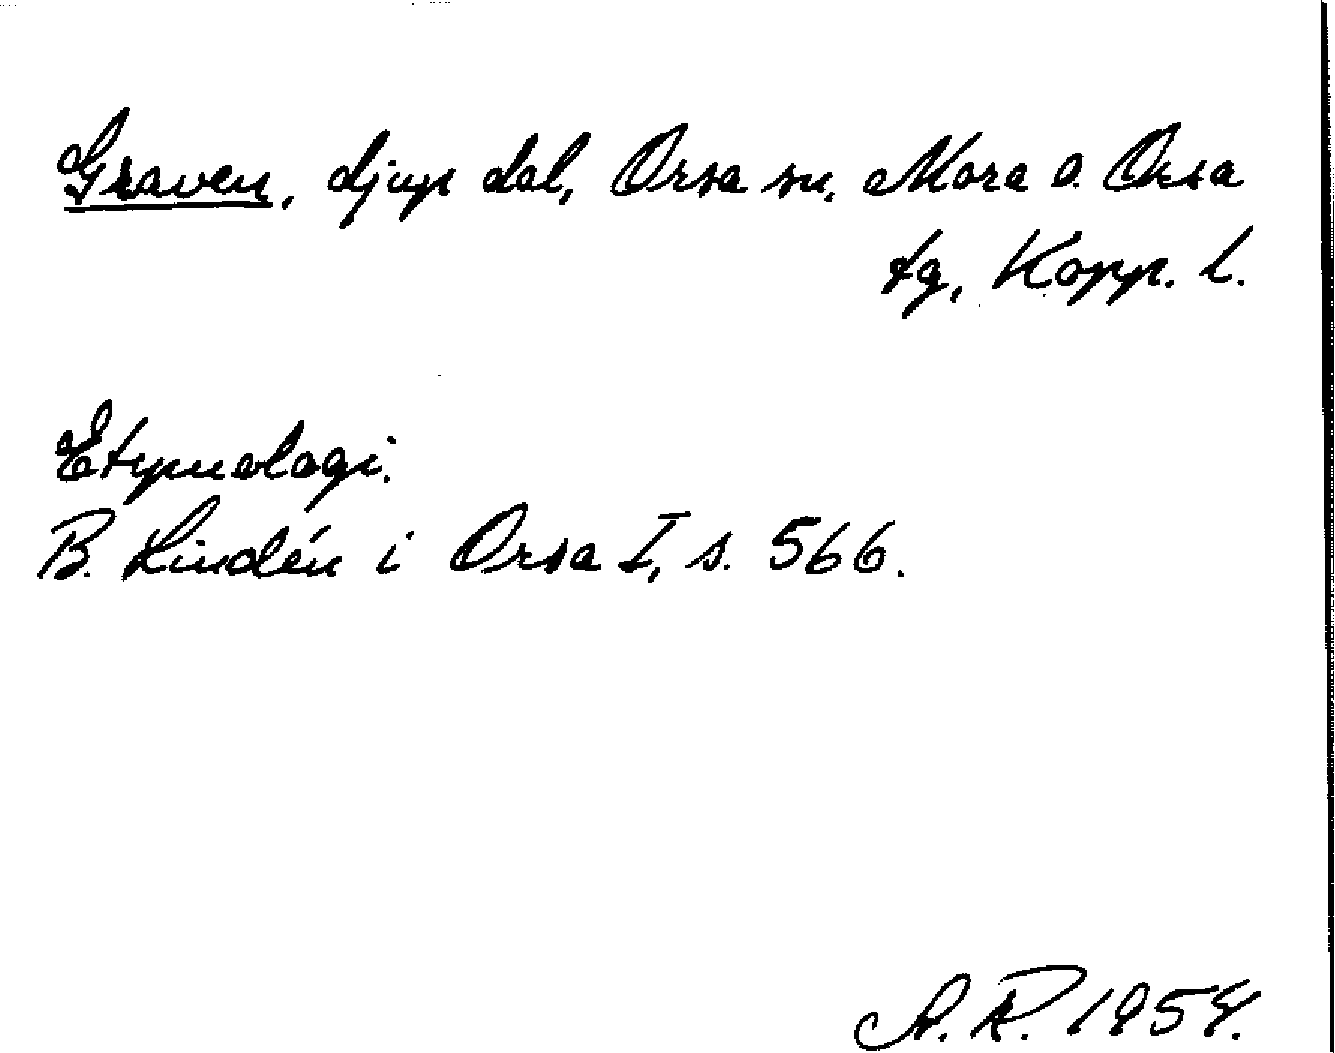 Graven, djup dal, Orsa sn. Mora o. Orsa
tg, Kopp. l.
Etymologi.
B. Lindén i Orsa I, s. 566.
A. R. 1954.